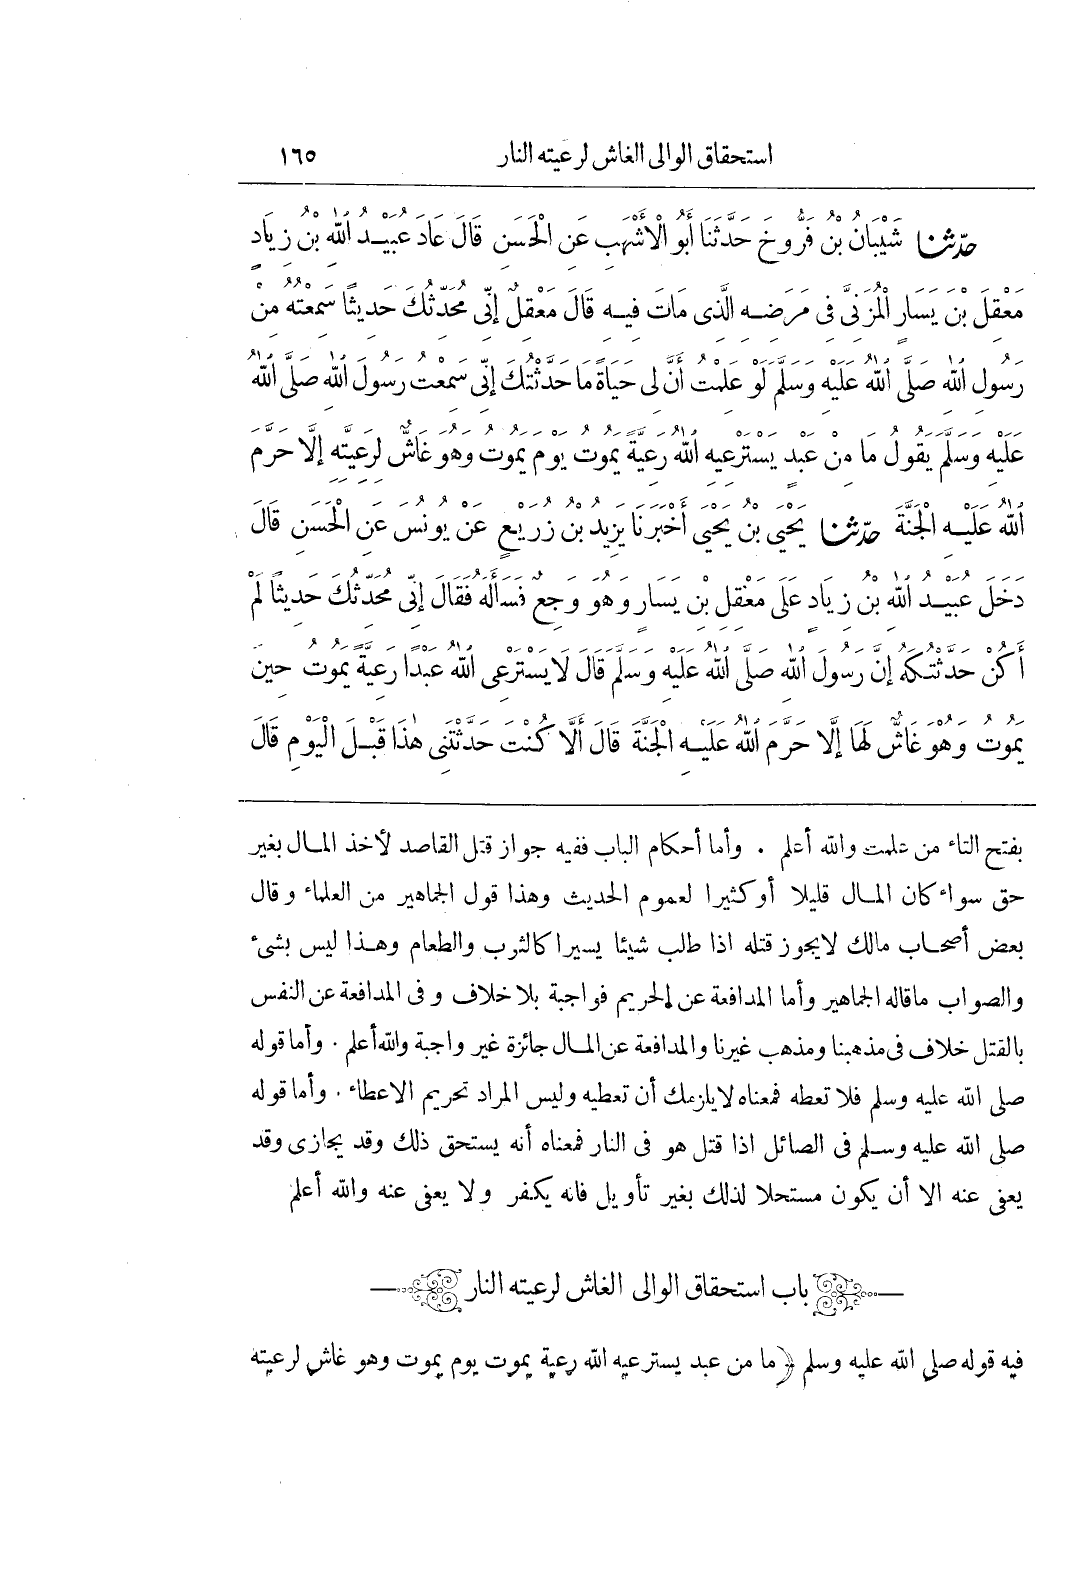 استحقاق الوالى الغاش لرعيته النار ١٦٥
حدّثنا شَيْبَانُ بْنُ فَرُّوخَ حَدَّثَنَا أَبُو الْأَشْهَبِ عَنِ الْحَسَنِ قَالَ عَادَ عُبَيْدُ اللهِ بْنُ زِيَادٍ
مَعْقِلَ بْنَ يَسَارٍ الْمُزَنِىَّ فِى مَرَضِهِ الَّذِى مَاتَ فِيهِ قَالَ مَعْقِلٌ إِنِّى مُحَدِّثُكَ حَدِيثًا سَمِعْتُهُ مِنْ
رَسُولِ اللهِ صَلَّى اللهُ عَلَيْهِ وَسَلَّمَ لَوْ عَلِمْتُ أَنَّ لِى حَيَاةً مَا حَدَّثْتُكَ إِنِّى سَمِعْتُ رَسُولَ اللهِ صَلَّى اللهُ
عَلَيْهِ وَسَلَّمَ يَقُولُ مَا مِنْ عَبْدٍ يَسْتَرْعِيهِ اللهُ رَعِيَّةً يَمُوتُ يَوْمَ يَمُوتُ وَهُوَ غَاشٌّ لِرَعِيَّتِهِ إِلَّا حَرَّمَ
اللهُ عَلَيْهِ الْجَنَّةَ حدّثنا يَحْيَى بْنُ يَحْيَى أَخْبَرَنَا يَزِيدُ بْنُ زُرَيْعٍ عَنْ يُونُسَ عَنِ الْحَسَنِ قَالَ
دَخَلَ عُبَيْدُ اللهِ بْنُ زِيَادٍ عَلَى مَعْقِلِ بْنِ يَسَارٍ وَهُوَ وَجِعٌ فَسَأَلَهُ فَقَالَ إِنِّى مُحَدِّثُكَ حَدِيثًا لَمْ
أَكُنْ حَدَّثْتُكَهُ إِنَّ رَسُولَ اللهِ صَلَّى اللهُ عَلَيْهِ وَسَلَّمَ قَالَ لَا يَسْتَرْعِى اللهُ عَبْدًا رَعِيَّةً يَمُوتُ حِينَ
يَمُوتُ وَهُوَ غَاشٌّ لَهَا إِلَّا حَرَّمَ اللهُ عَلَيْهِ الْجَنَّةَ قَالَ أَلَّا كُنْتَ حَدَّثْتَنِى هٰذَا قَبْلَ الْيَوْمِ قَالَ
بفتح التاء من علمت والله أعلم . وأما أحكام الباب ففيه جواز قتل القاصد لأخذ المال بغير
حق سواء كان المال قليلا أو كثيرا لعموم الحديث وهذا قول الجماهير من العلماء وقال
بعض أصحاب مالك لايجوز قتله اذا طلب شيئا يسيرا كالثوب والطعام وهذا ليس بشىء
والصواب ماقاله الجماهير وأما المدافعة عن الحريم فواجبة بلا خلاف وفى المدافعة عن النفس
بالقتل خلاف فى مذهبنا ومذهب غيرنا والمدافعة عن المال جائزة غير واجبة والله أعلم . وأما قوله
صلى الله عليه وسلم فلا تعطه فمعناه لايلزمك أن تعطيه وليس المراد تحريم الاعطاء . وأما قوله
صلى الله عليه وسلم فى الصائل اذا قتل هو فى النار فمعناه أنه يستحق ذلك وقد يجازى وقد
يعفى عنه الا أن يكون مستحلا لذلك بغير تأويل فانه يكفر ولا يعفى عنه والله أعلم
باب استحقاق الوالى الغاش لرعيته النار
فيه قوله صلى الله عليه وسلم ﴿ما من عبد يسترعيه الله رعية يموت يوم يموت وهو غاش لرعيته